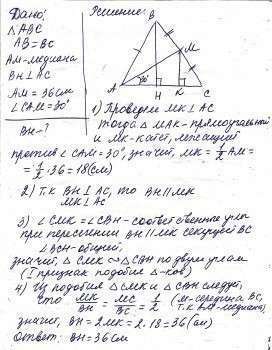 Дано:
△ABC
AB=BC
AM-медиана
BH⊥AC
AM=36см
∠CAM=30°
BH-?
Решение:
B
M
A
30°
H
K
C
1) Проведем MK⊥AC
тогда △MAK-прямоугольный
и MK-катет, лежащий
против ∠CAM=30°, значит, MK=1/2 AM=
=1/2·36=18(см)
2) Т.к BH⊥AC, то BH∥MK
MK⊥AC
3) ∠CMK=∠CBH-соответственные углы
при пересечении BH∥MK секущей BC
∠BCH-общий,
значит, △CMK∾△CBH по двум углам
(I признак подобия △-ков)
4) Из подобия △CMK и △CBH следует,
что MK/BH=MC/BC=1/2 (M-середина BC,
т.к AM-медиана)
значит, BH=2MK=2·18=36(см)
Ответ: BH=36см